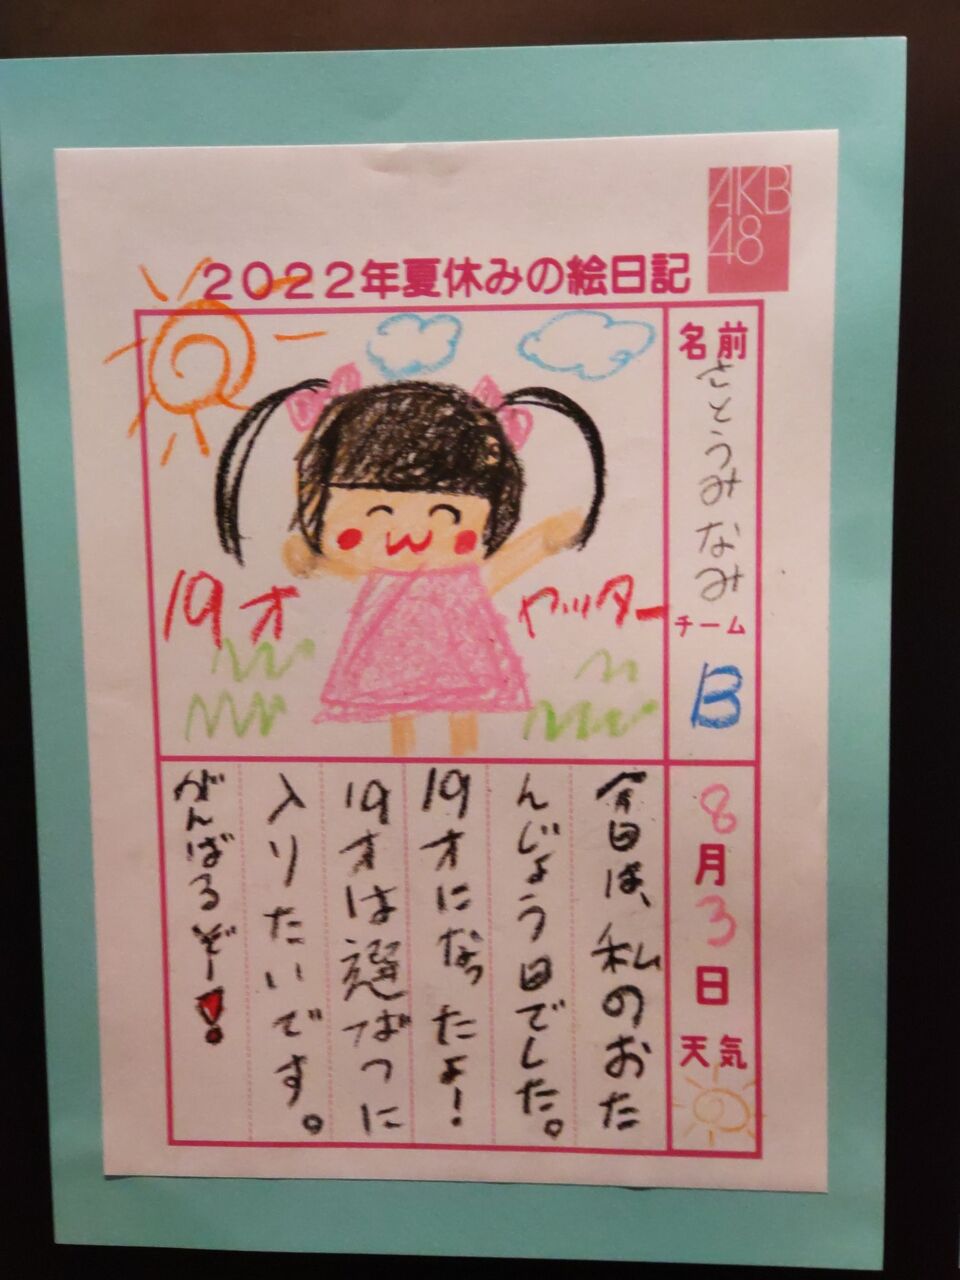 AKB
48
2022年夏休みの絵日記
名前
さとうみなみ
チーム
B
8月3日
天気
19才
ヤッター
今日は、私のおた
んじょう日でした。
19才になったよ!
19才は選ばつに
入りたいです。
がんばるぞー!